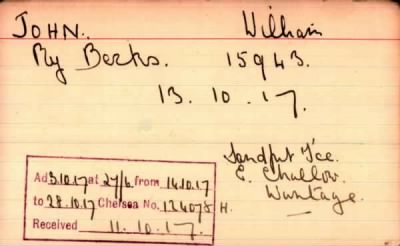 JOHN. William
Ry Berks. 15943.
13. 10. 17.
Sandput Tce.
E. Challow.
Wantage.
Ad 3.10.17 at 27/6 from 14.10.17
to 28.10.17 Chelsea No. 124078 H.
Received 11.10.17.